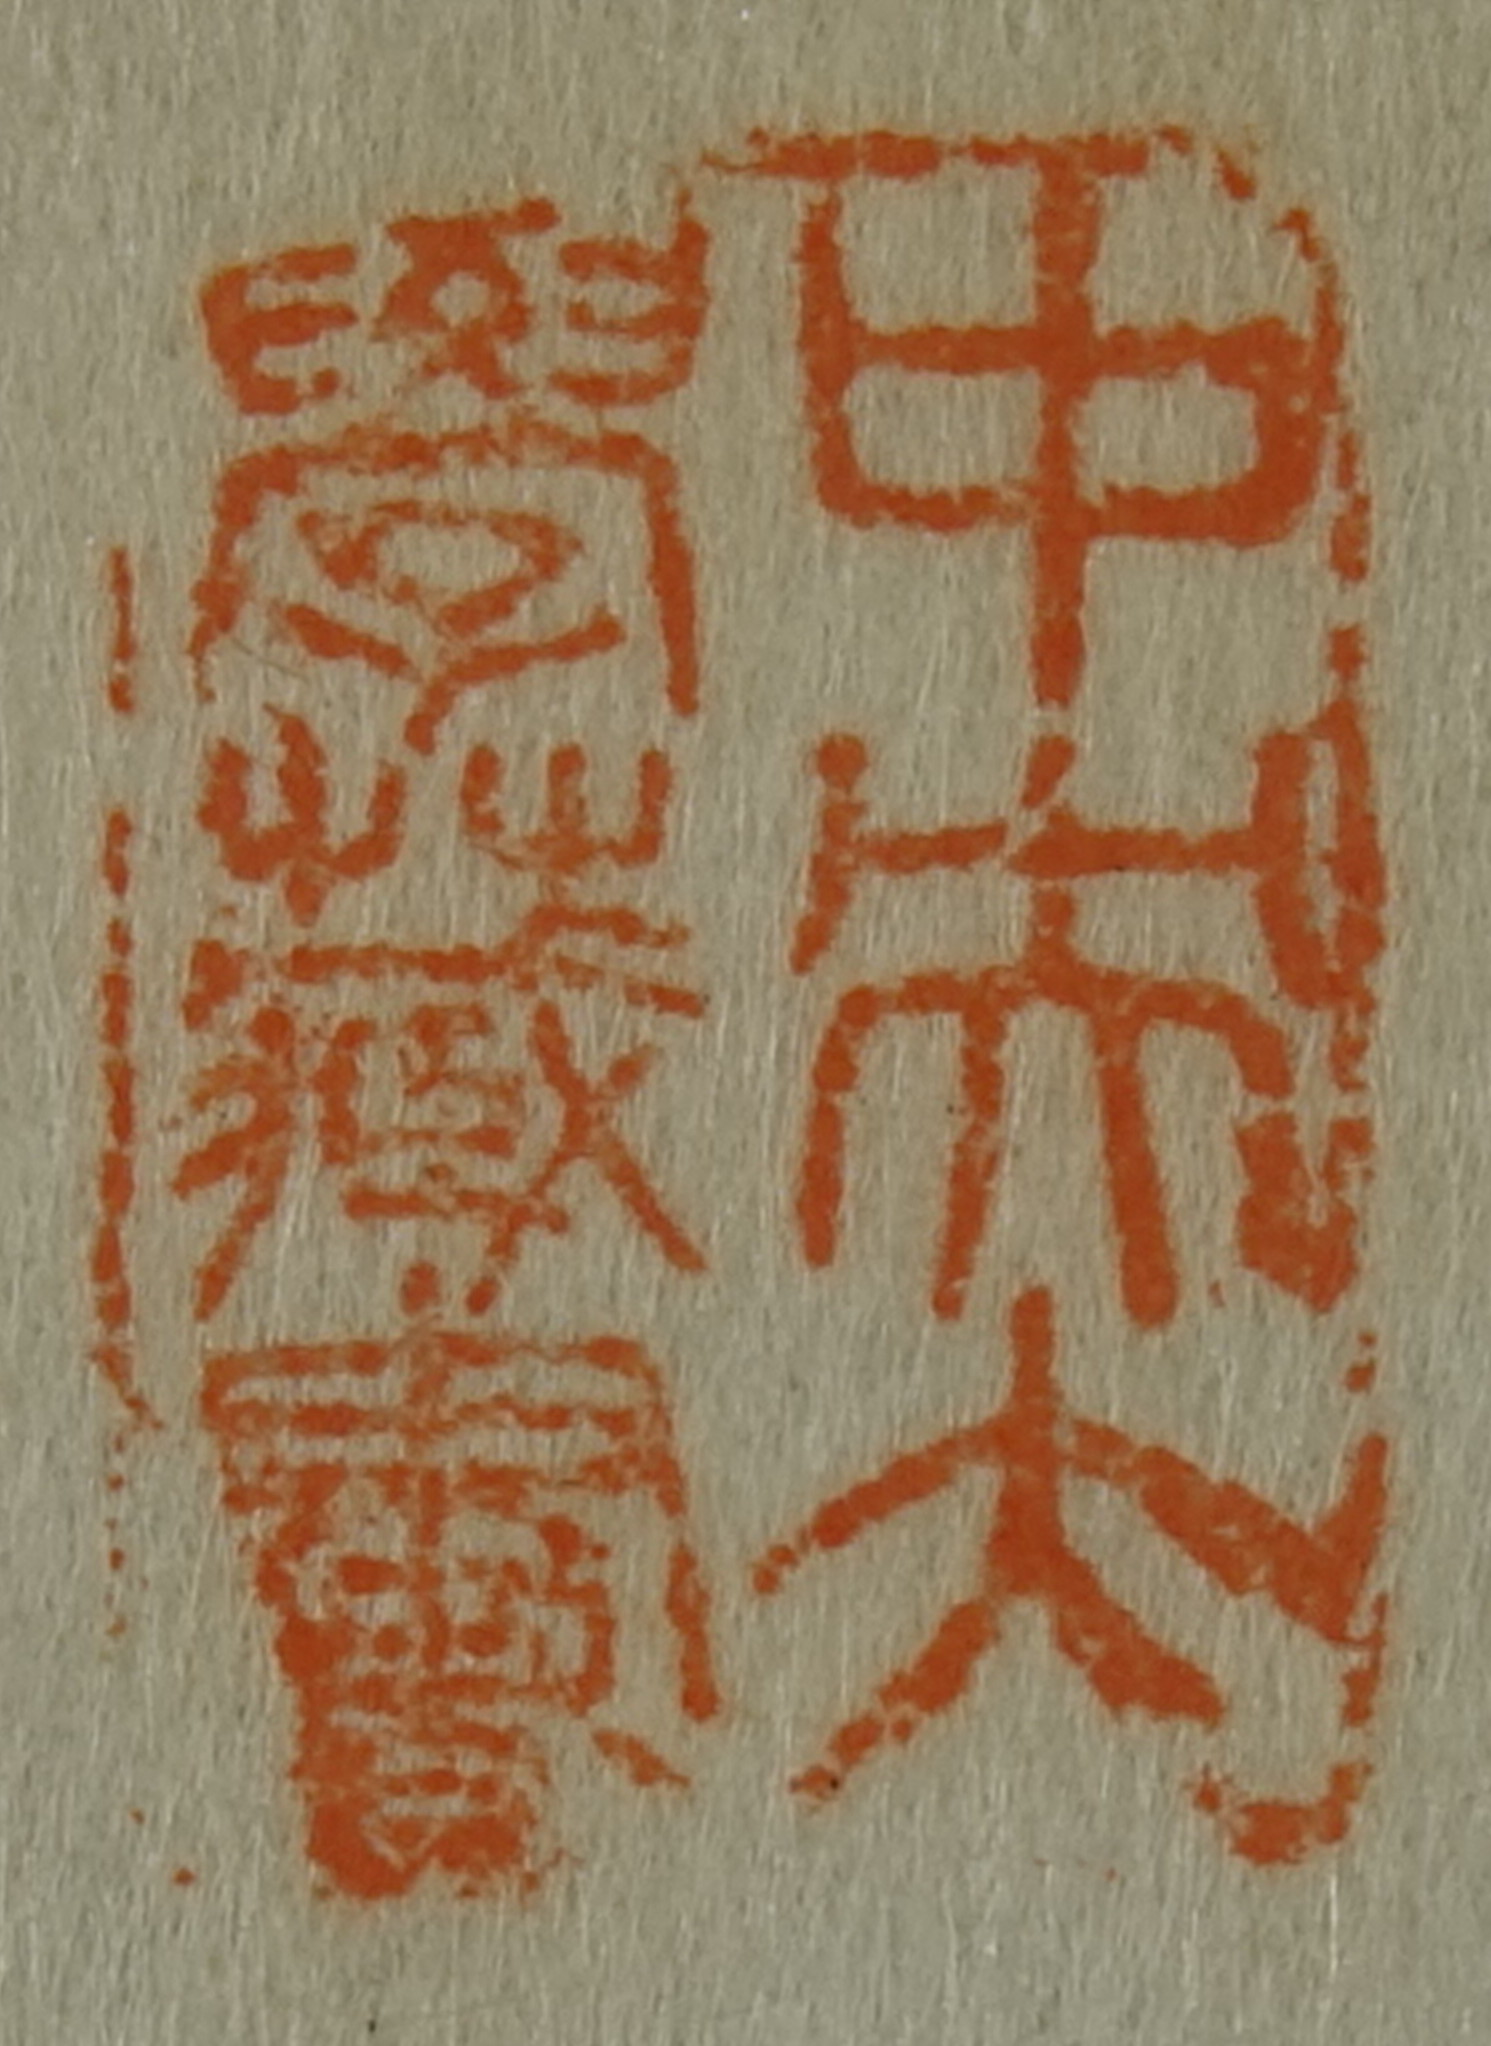 中央大
學藏書